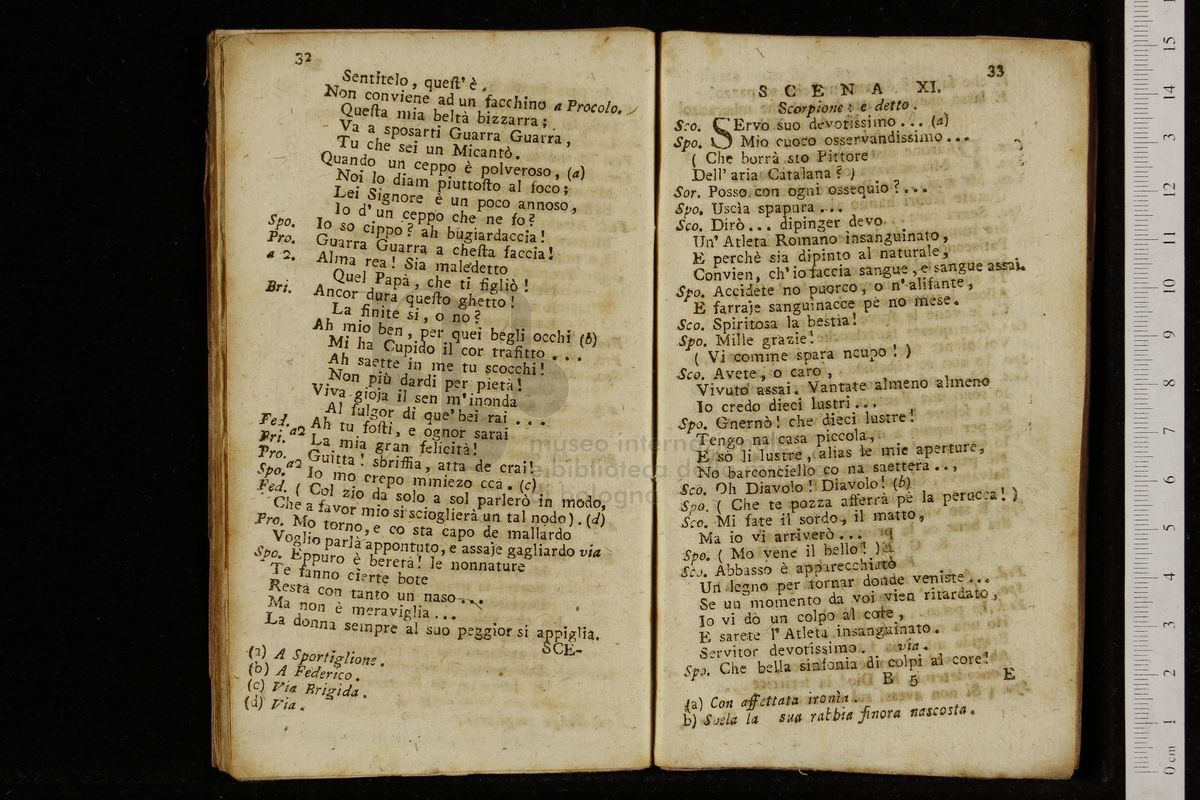 32
Sentitelo, quest' è.
Non conviene ad un facchino a Procolo.
Questa mia beltà bizzarra;
Va a sposarti Guarra Guarra,
Tu che sei un Micantò.
Quando un ceppo è polveroso, (a)
Noi lo diam piuttosto al foco;
Lei Signore è un poco annoso,
Io d'un ceppo che ne fo?
Spo. Io so cippo? ah bugiardaccia!
Pro. Guarra Guarra a chesta faccia!
a 2. Alma rea! Sia maledetto
Quel Papà, che ti figliò!
Bri. Ancor dura questo ghetto!
La finite si, o no?
Ah mio ben, per quei begli occhi (b)
Mi ha Cupido il cor trafitto...
Ah saette in me tu scocchi!
Non più dardi per pietà!
Viva gioja il sen m'inonda
Al fulgor di que' bei rai...
Fed. a2 Ah tu fosti, e ognor sarai
Bri. La mia gran felicità!
Pro. a2 Guitta! sbriffia, atta de crai!
Spo. Io mo crepo mmiezo cca. (c)
Fed. ( Col zio da solo a sol parlerò in modo,
Che a favor mio si scioglierà un tal nodo). (d)
Pro. Mo torno, e co sta capo de mallardo
Voglio parlà appontuto, e assaje gagliardo via
Spo. Eppuro è beretà! le nonnature
Te fanno cierte bote
Resta con tanto un naso...
Ma non è meraviglia...
La donna sempre al suo peggior si appiglia.
SCE-
(a) A Sportiglione.
(b) A Federico.
(c) Via Brigida.
(d) Via.
33
SCENA XI.
Scorpione: e detto.
Sco. SErvo suo devotissimo... (a)
Spo. Mio cuoco osservandissimo...
( Che borrà sto Pittore
Dell' aria Catalana? )
Sor. Posso con ogni ossequio?...
Spo. Uscìa spapura...
Sco. Dirò... dipinger devo
Un' Atleta Romano insanguinato,
E perchè sia dipinto al naturale,
Convien, ch'io faccia sangue, e sangue assai.
Spo. Accidete no puorco, o n'alifante,
E farraje sanguinacce pe no mese.
Sco. Spiritosa la bestia!
Spo. Mille grazie!
( Vi comme spara ncupo! )
Sco. Avete, o caro,
Vivuto assai. Vantate almeno almeno
Io credo dieci lustri...
Spo. Gnernò! che dieci lustre!
Tengo na casa piccola,
E so li lustre, alias le mie aperture,
No barconciello co na saettera..,
Sco. Oh Diavolo! Diavolo! (b)
Spo. ( Che te pozza afferrà pe la perucca! )
Sco. Mi fate il sordo, il matto,
Ma io vi arriverò...
Spo. ( Mo vene il bello! )
Sco. Abbasso è apparecchiato
Un legno per tornar donde veniste...
Se un momento da voi vien ritardato,
Io vi dò un colpo al core,
E sarete l'Atleta insanguinato.
Servitor devotissimo. via.
Spo. Che bella sinfonia di colpi al core!
B 5 E
(a) Con affettata ironia.
b) Svela la sua rabbia finora nascosta.